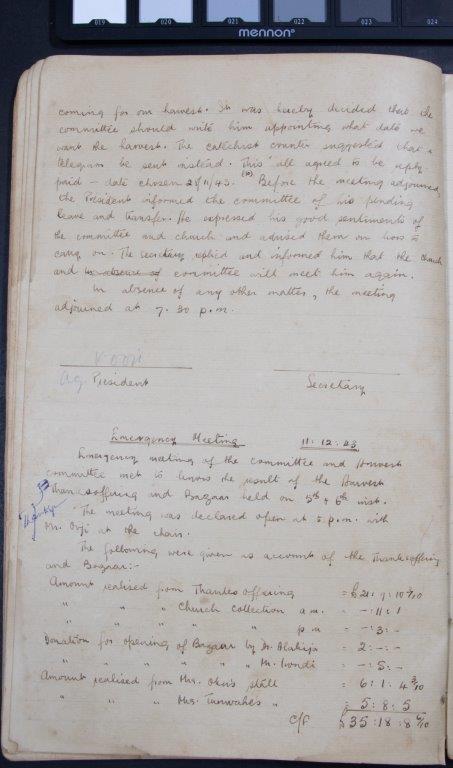 019 020 021 022 023 024
mennon
coming for our harvest. It was hereby decided that the
committee should write him appointing what date we
want the harvest. The catechist counter suggested that a
telegram be sent instead. This all agreed to be reply
paid – date chosen 28/11/43. Before the meeting adjourned,
the President informed the committee of his pending
leave and transfer. He expressed his good sentiments of
the committee and church and advised them on how to
carry on. The secretary replied and informed him that the church
and in absence of committee will meet him again.
In absence of any other matter, the meeting
adjourned at 7.30 p.m.
Ag. President Secretary
Emergency Meeting 11:12:43
Emergency meeting of the committee and Harvest
committee met to know the result of the Harvest
Thanksoffering and Bazaar held on 5th & 6th inst.
The meeting was declared open at 5 p.m. with
Mr. Orji at the chair.
The following were given as account of the Thanksoffering
and Bazaar:-
Amount realised from Thanksoffering = £21:9:10 9/10
" " " Church Collection a.m. = -:11:1
" " " " " p.m = -:3:-
Donation for opening of Bazaar by Dr. Olabisi = 2:-:-
" " " " " Mr. Iwondi = -:5:-
Amount realised from Mrs. Oku's stall = 6:1:4 3/10
" " " Mrs. Tunwashe's " £ 5:8:5
C/f £35:18:8